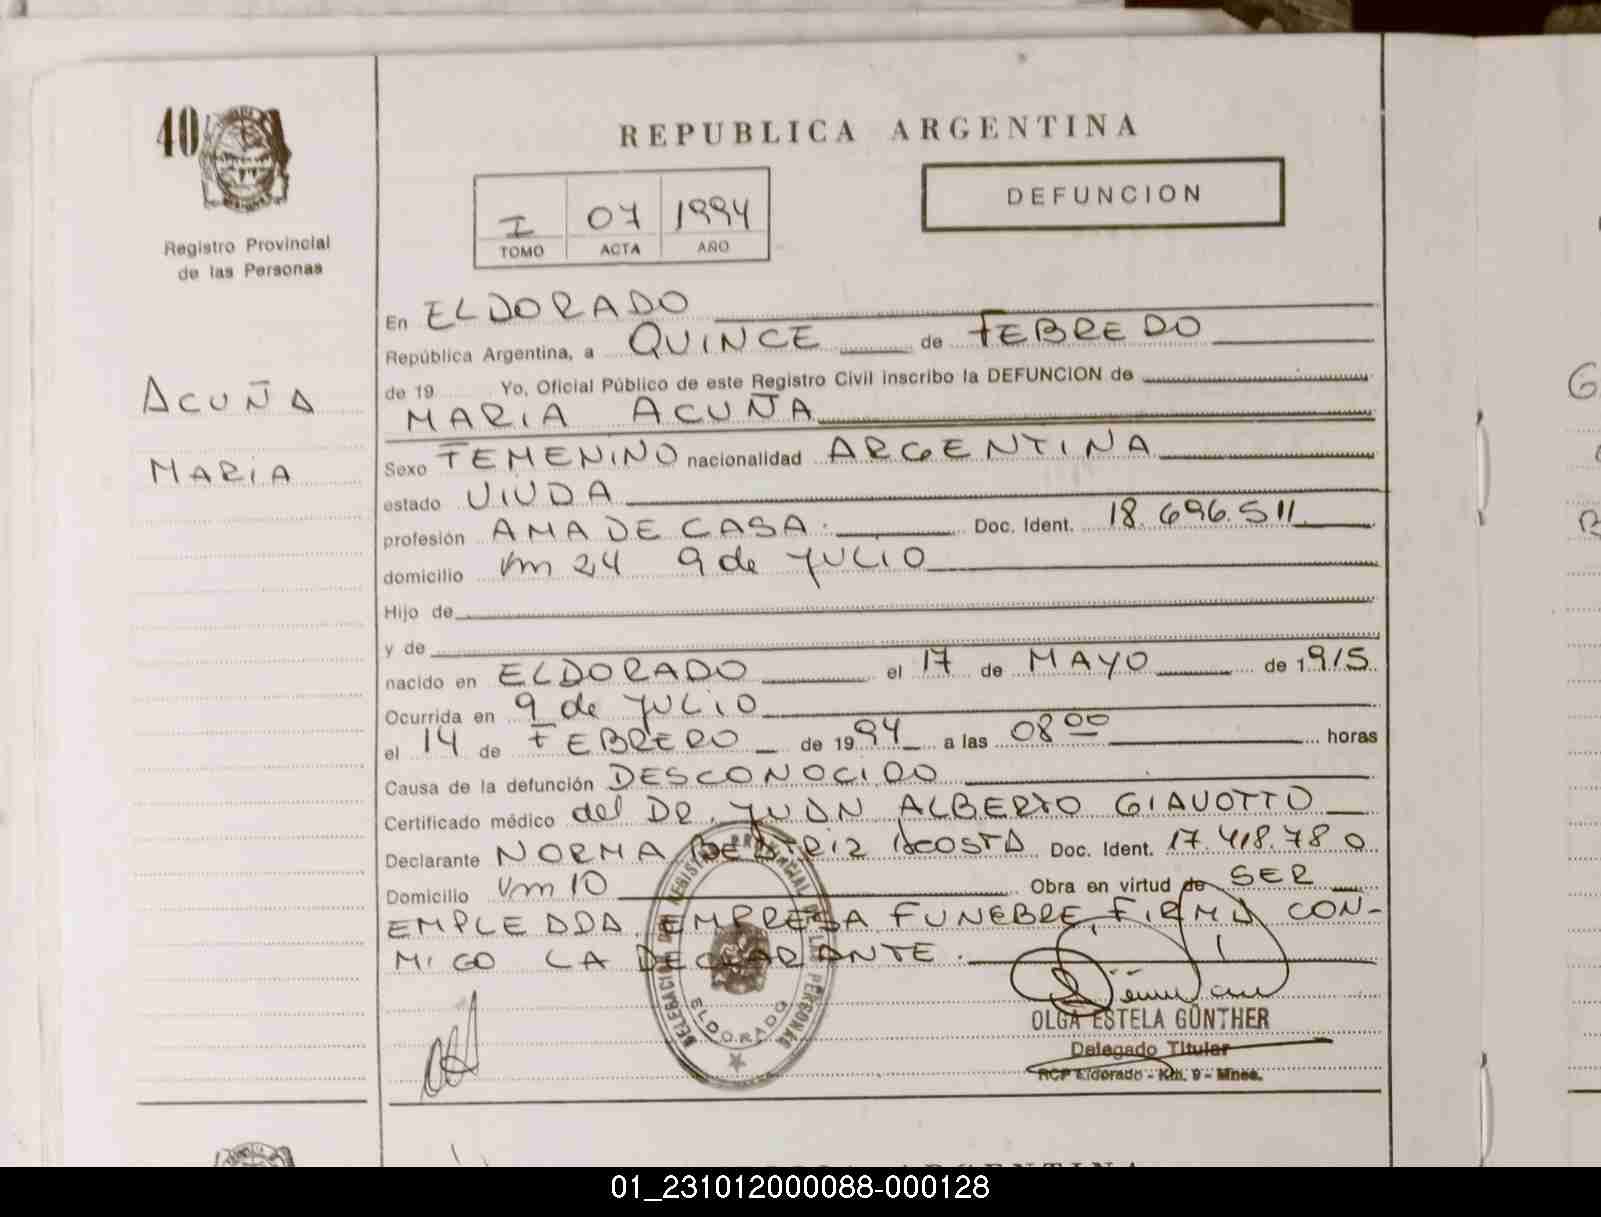 40
Registro Provincial
de las Personas
ACUÑA
MARIA
REPUBLICA ARGENTINA
I 07 1994
TOMO ACTA AÑO
DEFUNCION
En ELDORADO
República Argentina, a QUINCE de FEBRERO
de 19 Yo, Oficial Público de este Registro Civil inscribo la DEFUNCION de
MARIA ACUÑA
Sexo FEMENINO nacionalidad ARGENTINA
estado VIUDA
profesión AMA DE CASA. Doc. Ident. 18.696.511
domicilio Km 24 9 de JULIO
Hijo de
y de
nacido en ELDORADO el 17 de MAYO de 1915
Ocurrida en 9 de JULIO
el 14 de FEBRERO de 1994 a las 08 00 horas
Causa de la defunción DESCONOCIDO
Certificado médico del DR. JUAN ALBERTO GIAVOTTO
Declarante NORMA BEATRIZ ACOSTA Doc. Ident. 17.418.780
Domicilio Km 10 Obra en virtud de SER
EMPLEADA EMPRESA FUNEBRE FIRMA CON-
MIGO LA DECLARANTE.
DELEGACION DEL REGISTRO PROVINCIAL DE LAS PERSONAS
ELDORADO
OLGA ESTELA GÜNTHER
Delegado Titular
RCP Eldorado - Km. 9 - Mnes.
REPUBLICA ARGENTINA
01_231012000088-000128